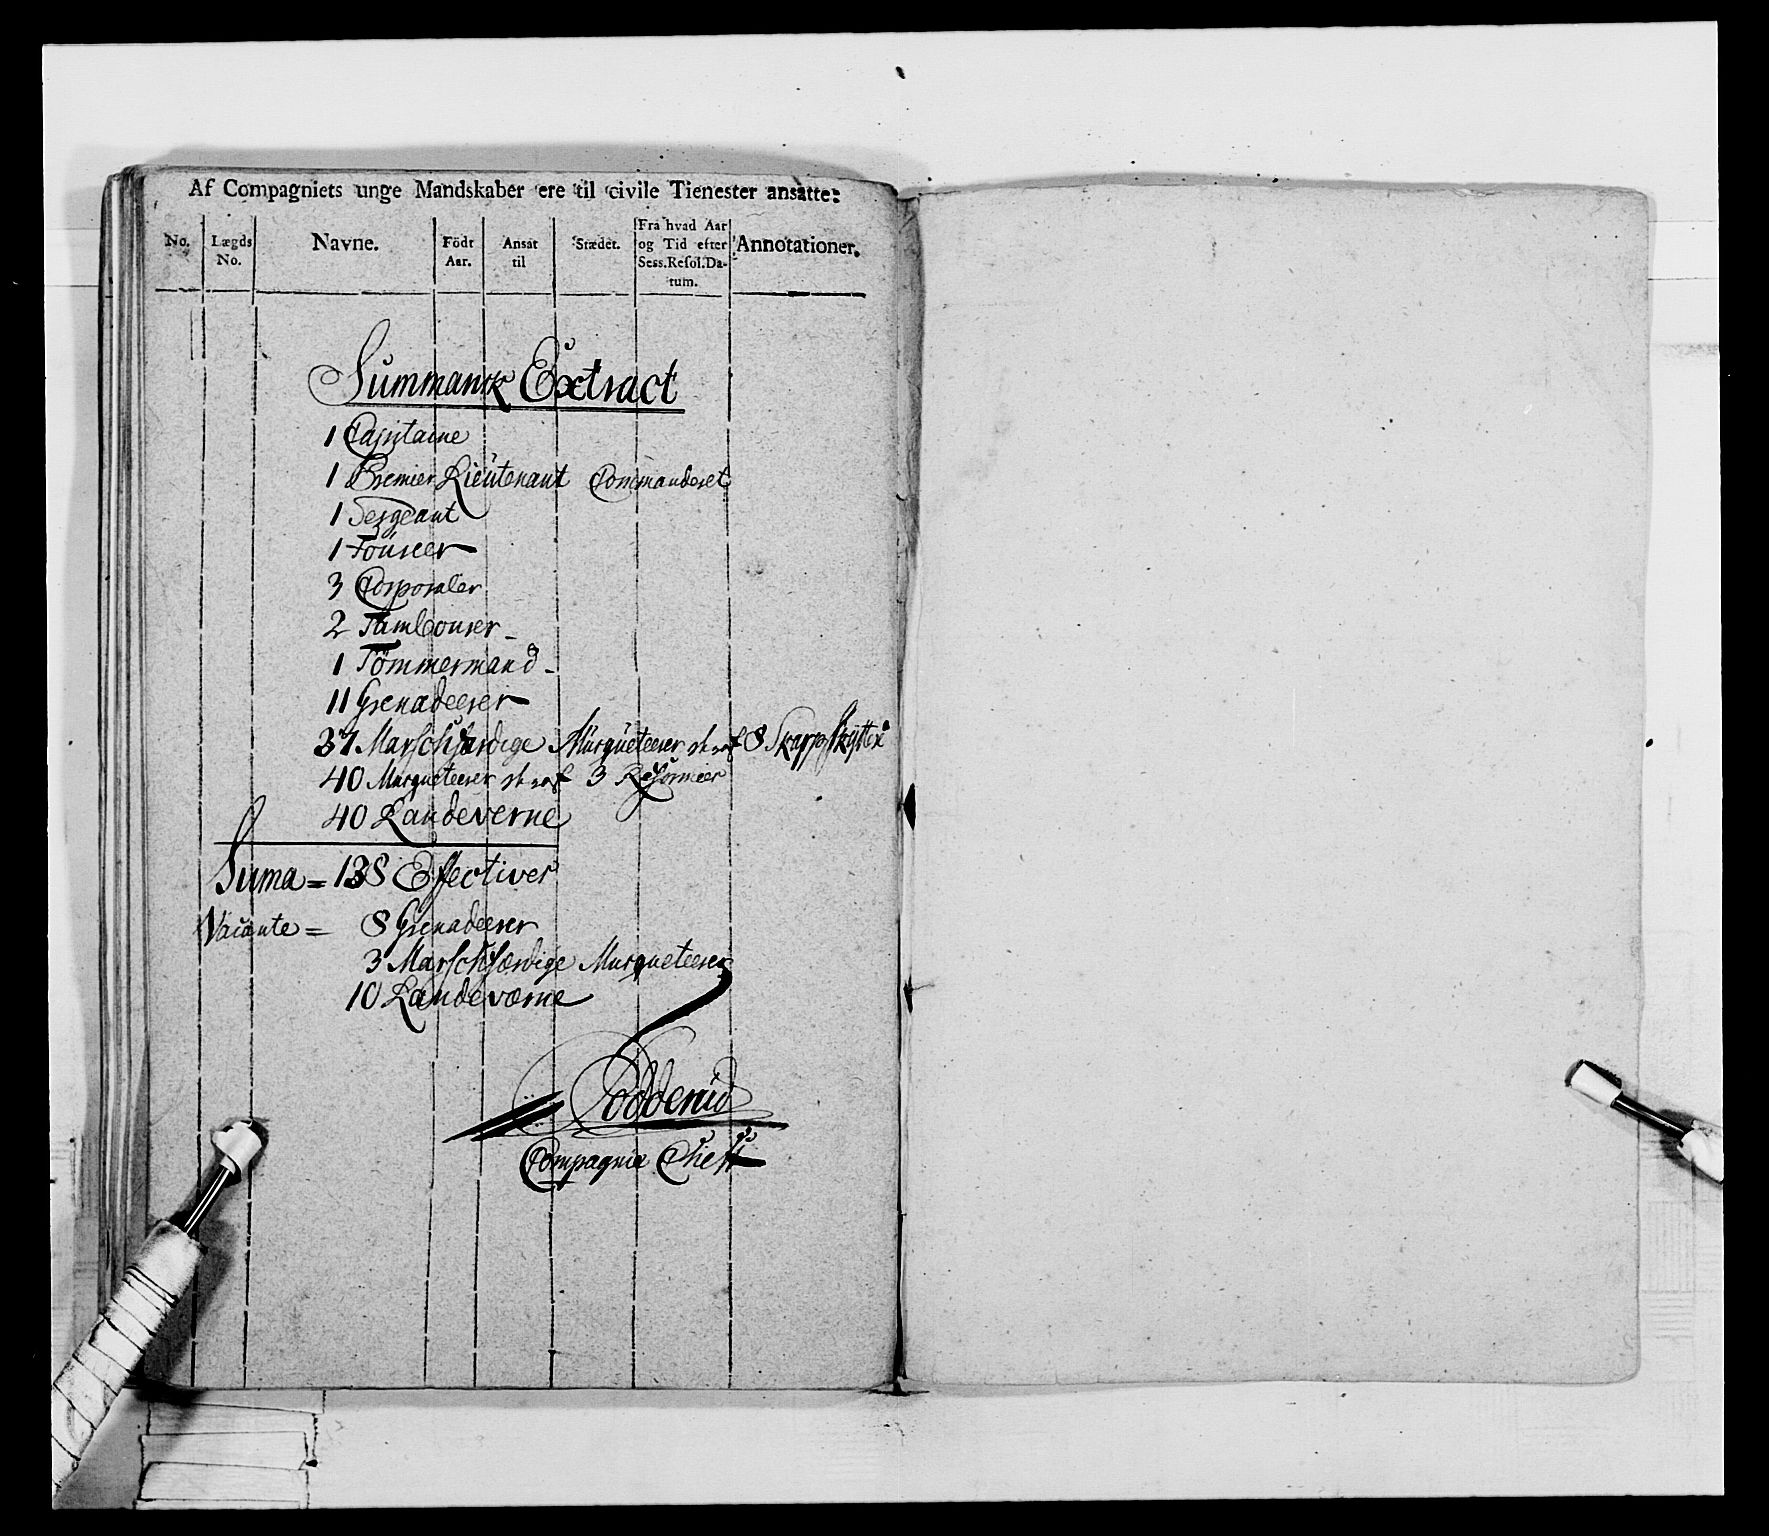 Af Compagniets unge Mandskaber ere til civile Tienester ansatte:
No. Lægds No. Navne. Födt Aar. Ansat til Stædet. Fra hvad Aar og Tid efter Sess.Resol.Datum. Annotationer.
Summarisk Extract
1 Capitaine
1 Premier Lieutenant Commanderet
1 Sergeant
1 Foureer
3 Corporaler
2 Tambourer
1 Tömmermand
11 Grenadeerer
37 Marschfærdige Musqueteerer 8 Skarpskytter
40 Musqueteerer 3 Reformeer
40 Landeverne
Suma = 138 Effectiver
Vacante = 8 Grenadeerer
3 Marschfærdige Musqueteerer
10 Landeværne
Compagnie Cheff